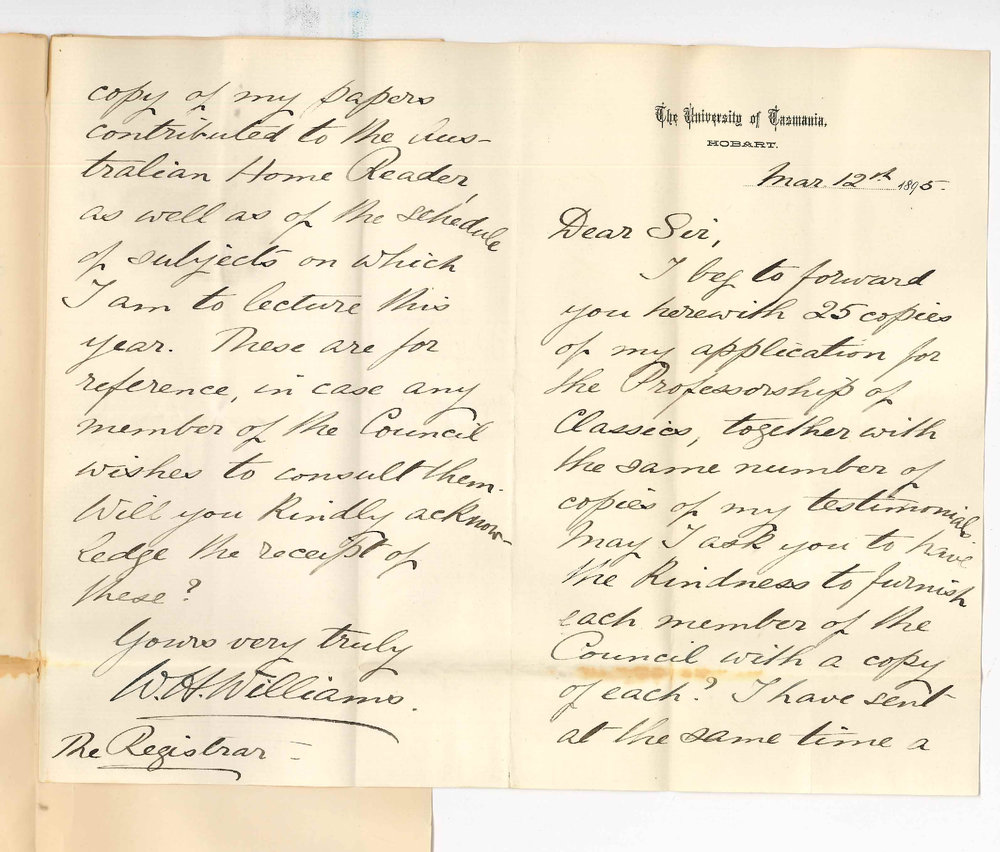 The University of Tasmania.
HOBART.
Mar 12th 1895.
Dear Sir,
I beg to forward
you herewith 25 copies
of my application for
the Professorship of
Classics, together with
the same number of
copies of my testimonials.
May I ask you to have
the kindness to furnish
each member of the
Council with a copy
of each? I have sent
at the same time a
copy of my papers
contributed to the Aus-
tralian Home Reader,
as well as of the schedule
of subjects on which
I am to lecture this
year. These are for
reference, in case any
member of the Council
wishes to consult them.
Will you kindly acknow-
ledge the receipt of
these?
Yours very truly
W. H. Williams.
The Registrar